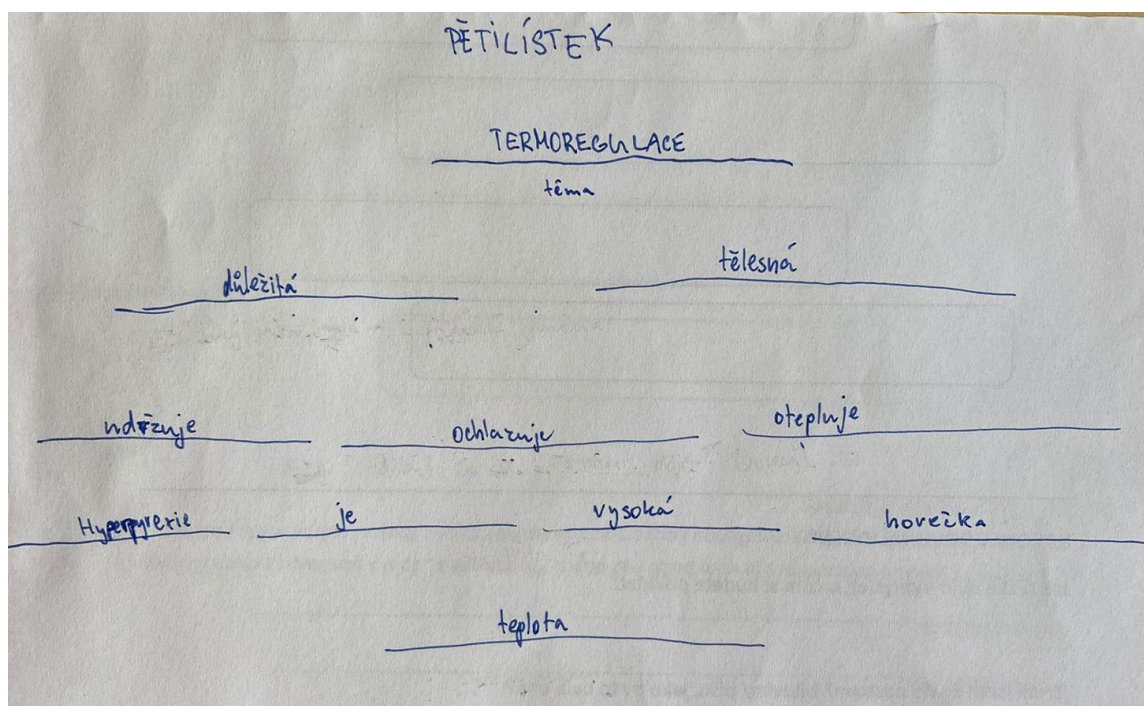 PĚTILÍSTEK
TERMOREGULACE
téma
důležitá tělesná
udržuje ochlazuje otepluje
Hyperpyrexie je vysoká horečka
teplota